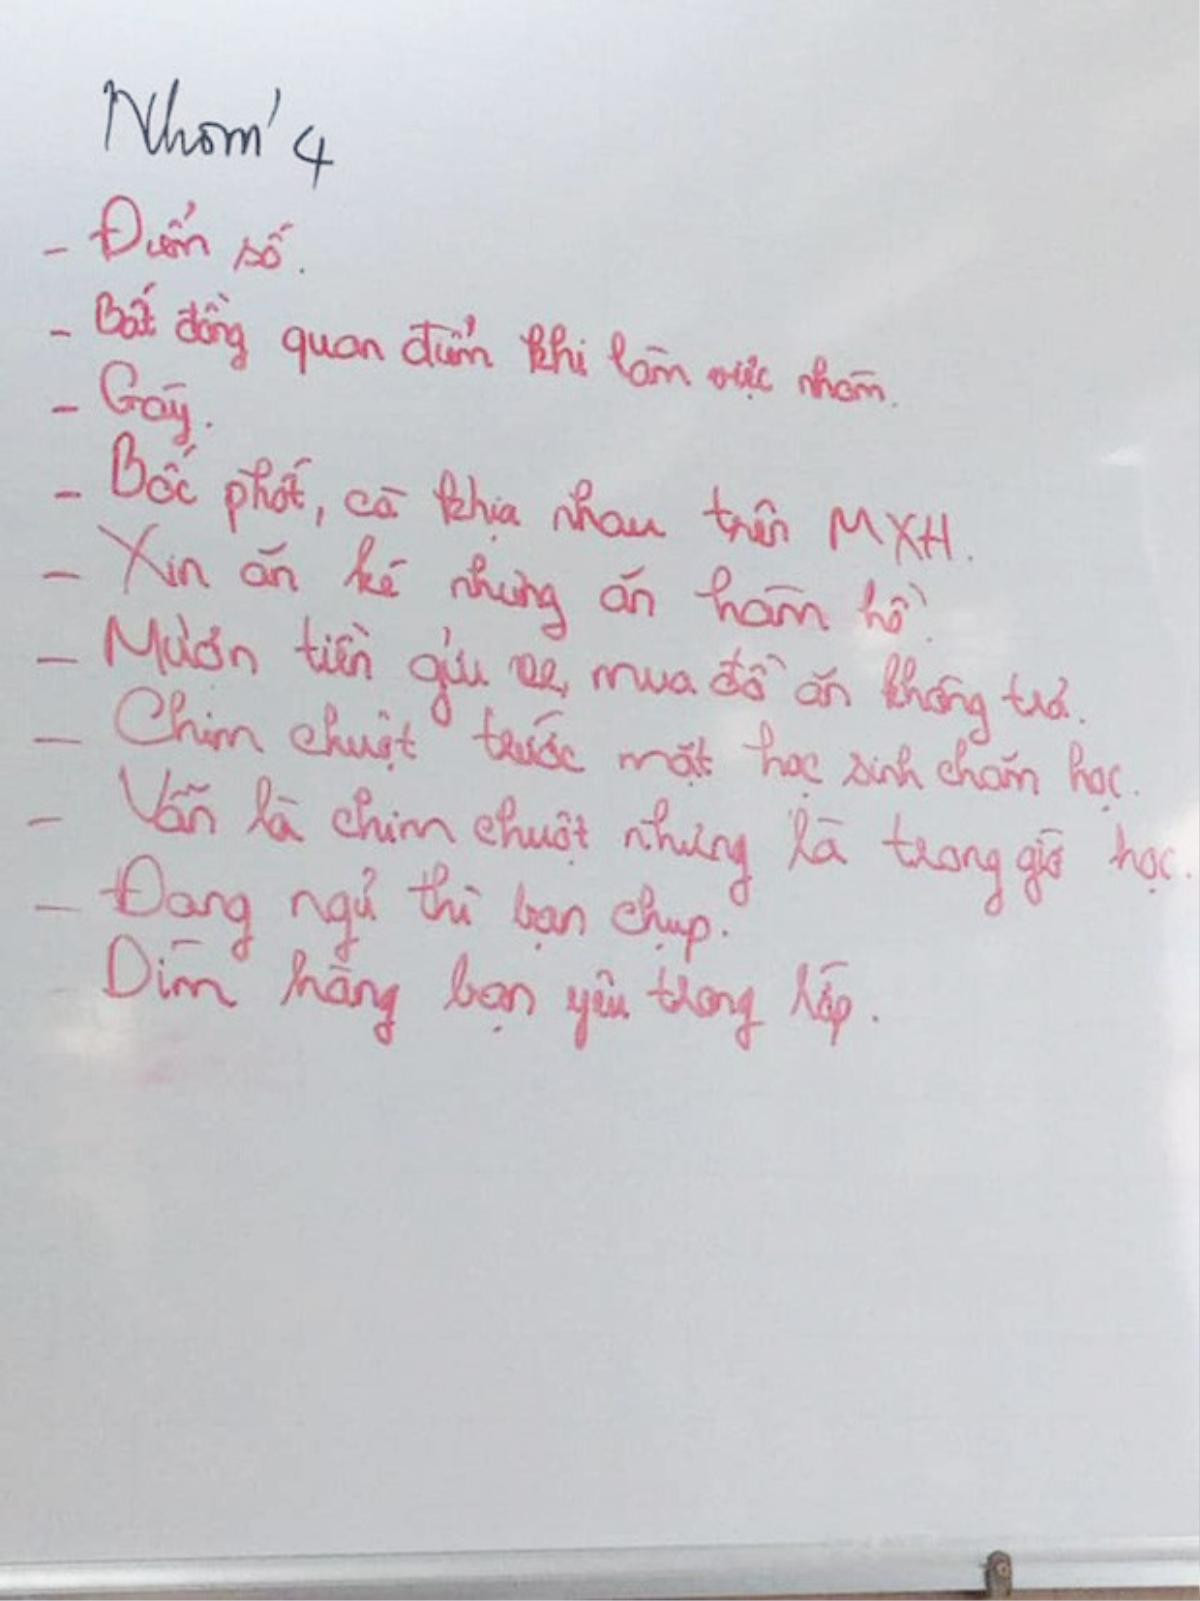 Nhóm 4
- Điểm số.
- Bất đồng quan điểm khi làm việc nhóm.
- Gãy.
- Bốc phốt, cà khịa nhau trên MXH.
- Xin ăn ké nhưng ăn hàm hồ.
- Mượn tiền gửi xe, mua đồ ăn không trả.
- Chim chuột trước mặt học sinh chăm học.
- Vẫn là chim chuột nhưng là trong giờ học.
- Đang ngủ thì bạn chụp.
Dìm hàng bạn yêu trong lớp.